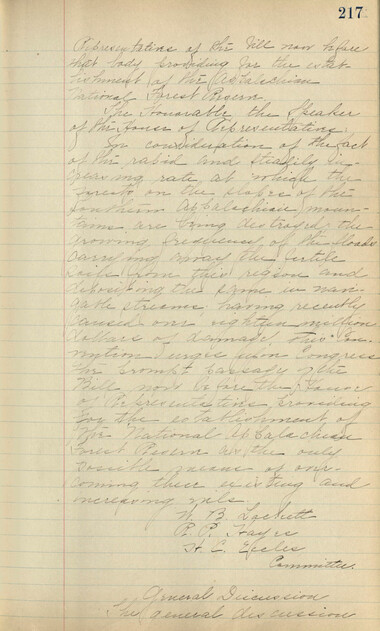 217
Representatives of the Bill now before
that body providing for the estab-
lishment of the Appalachian
National Forest Reserve.
The Honorable the Speaker
of the House of Representatives,
In consideration of the fact
of the rapid and steadily in-
creasing rate at which the
forests on the slopes of the
Southern Appalachian moun-
tains are being destroyed, the
growing frequency of the floods
carrying away the fertile
soils from this region and
depositing the same in navi-
gable streams having recently
caused over eighteen million
dollars of damage, this Con-
vention urges upon Congress
the prompt passage of the
Bill now before the House
of Representatives providing
for the establishment of
the National Appalachian
Forest Reserve as the only
possible means of over-
coming these existing and
increasing evils.
W. B. Lockett
P. P. Hayes
H. C. Eccles
Committee.
General Discussion
The general discussion